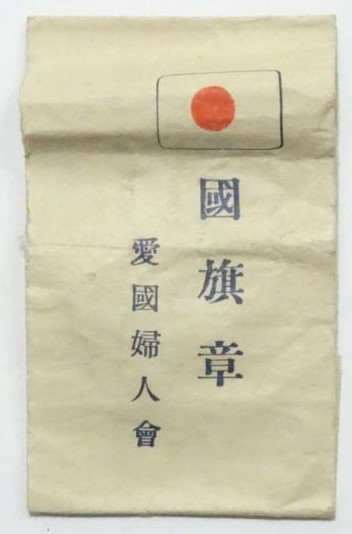 國旗章
愛國婦人會